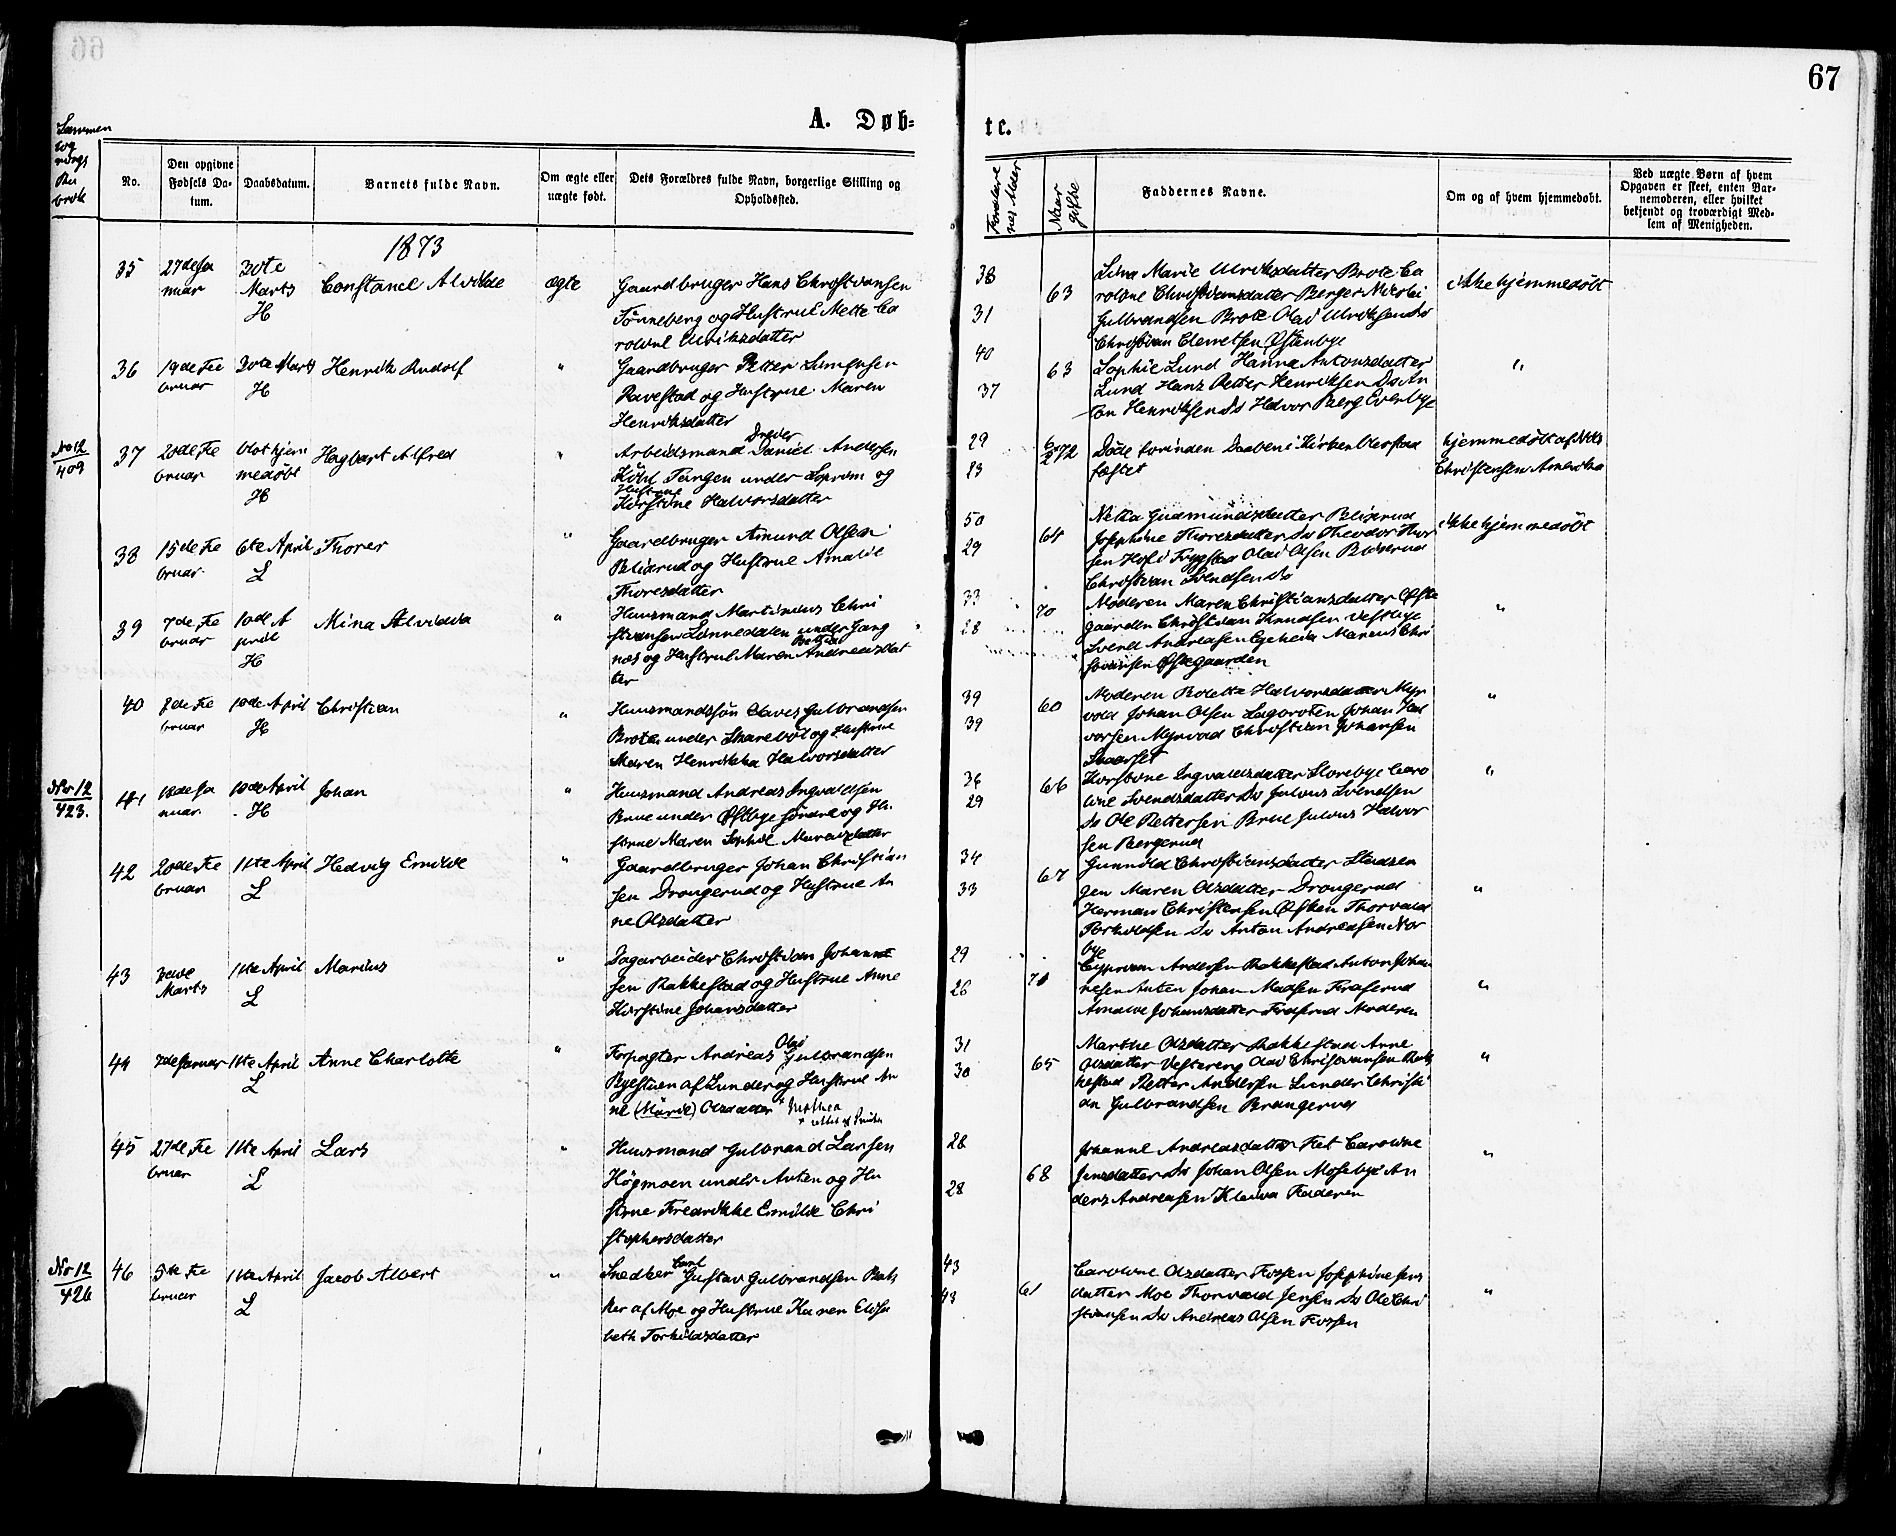 67
A. Døb-
te.
No.
Den opgivne
Fødsels Da-
tum.
Daabsdatum.
Barnets fulde Navn.
Om ægte eller
uægte født.
Dets Forældres fulde Navn, borgerlige Stilling og
Opholdssted.
Faddernes Navne.
Om og af hvem hjemmedøbt.
Ved uægte Børn af hvem
Opgaven er skeet, enten Bar-
nemoderen, eller hvilket
bekjendt og troværdigt Med-
lem af Menigheden.
1873
35
27de Ja
nuar
30te
Marts
H
Constance Alvilde
ægte
Gaardbruger Hans Christiansen
Tønneberg og Hustrue Mette Ca
roline Ulriksdatter
38
31
63
Lina Marie Ulriksdatter Brote Ca
roline Christiansdatter Berger Nicolai
Gulbrandsen Brote Olai Ulriksen Do
ikke hjemmedøbt
36
19de Fe
bruar
30te Marts
H
Henrik Rudolf
"
Gaardbruger Petter Simensen
Ravestad og Hustrue Maren
Henriksdatter
40
37
63
Sophie Lund Hanna Antonsdatter
Lund Hans Petter Henriksen Do An
ton Henriksen Do Halvor Berg Everbye
"
No 12
409
37
20de Fe
bruar
blot hjem
medøbt
H
Hagbart Alfred
"
Arbeidsmand Daniel Andersen
Tangen under Soprim og
Hustrue
Kirstine Halvorsdatter
29
23
6/2 72
Døde forinden Daaben i Kirken
hjemmedøbt af
Christensen
38
15de Fe
bruar
6te April
L
Thorer
"
Gaardbruger Amund Olsen
Blixrud og Hustrue Amalie
Thoresdatter
50
29
64
Netta Gudmundsdatter Blixrud
Josephine Thoresdatter Do Theodor Thor
sen Hofs Frygstad Olai Olsen Blixerud
Christian Svendsen Do
ikke hjemmedøbt
39
7de Fe
bruar
10de A
pril
H
Mina Alvilda
"
Huusmand Martinius Chri
stiansen Lønnedalen under Gang
næs og Hustrue Maren Andreasdat
ter
33
28
70
Moderen Maren Christiansdatter Øste
gaarden Christian Knudsen Vestbye
Svend Andreasen Egeheia Marius Chri
stiansen Østegaarden
"
40
7de Fe
bruar
10de April
H
Christian
"
Huusmandssøn Claves Gulbrandsen
Broten under Skarebøl og Hustrue
Maren Henrikka Halvorsdatter
39
39
60
Moderen Bolette Halvorsdatter Myr
vold Johan Olsen Lageroten Johan Hal
vorsen Myrvold Christian Johansen
"
No 12
423.
41
18de Ja
nuar
10de April
H
Johan
"
Huusmand Andreas Ingvaldsen
Brue under Østbye søndre og Hu
strue Maren Sophie Mariusdatter
36
29
66
Kirstine Ingvaldsdatter Storebye Caro
line Svendsdatter Do Julius Svendsen
Do Ole Pettersen Brue Julius Halvor
sen Bergerud
"
42
20de Fe
bruar
11te April
L
Hedvig Emilie
"
Gaardbruger Johan Christian
sen Drongerud og Hustrue An
ne Olsdatter
34
33
67
Gunnild Christiansdatter
gen Maren Olsdatter Drongerud
Herman Christensen Østen Thorvald
Torkildsen Do Anton Andreasen Nor
bye
"
43
Marts
11te April
L
Marius
"
Dagarbeider Christian Johanne
sen Rakkestad og Hustrue Anne
Kirstine Johansdatter
29
26
71
Cyprian Andersen Rakkestad Anton Johan
nesen Anten Johan Madsen Fraserud
Amalie Johansdatter Fraserud Moderen
"
44
7de Januar
11te April
L
Anne Charlotte
"
Forpagter Andreas Olai Gulbrandsen
Byestuen af Lunder og Hustrue An
ne (Marie) Olsdatter
31
30
65
Marthe Olsdatter Rakkestad Anne
Olsdatter Vestereng Olai Christiansen Rak
kestad Petter Andersen Lunder Christi
an Gulbrandsen Brangerud
"
45
27de Fe
bruar
11te April
L
Lars
"
Huusmand Gulbrand Larsen
Høgmoen under Anten og Hu
strue Fredrikke Emilie Chri
stophersdatter
28
28
68
Johanne Andreasdatter Fet Caroline
Jensdatter Do Johan Olsen Mosebye An
ders Andreasen Kleiva Faderen
"
No 12
426
46
5te Fe
bruar
11te April
L
Jacob Albert
"
Snedker Carl Gustav Gulbrandsen Bak
ker af Moe og Hustrue Karen Elisa
beth Torkildsdatter
43
43
61
Caroline Olsdatter Fossen Josephine Jens
datter Moe Thorvald Jensen Do Ole Chri
stiansen Do Andreas Olsen Fossen
"